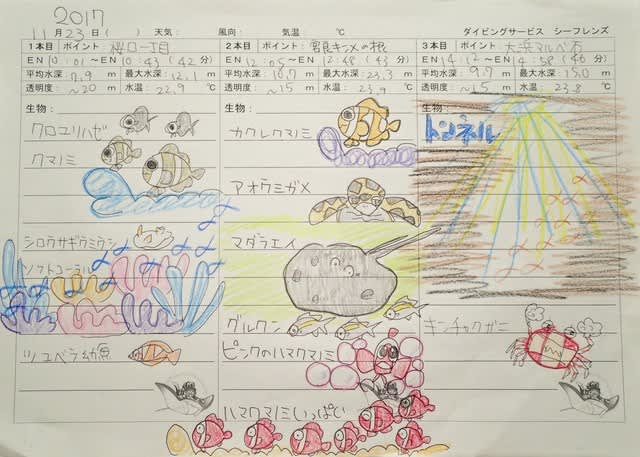 2017
11月23日( ) 天気: 風向: 気温 ℃ ダイビングサービス シーフレンズ
1本目 ポイント: 桜口一丁目
EN 10:01〜EN 10:43 (42分)
平均水深: 7.9m 最大水深: 12.1m
透明度: ~20m 水温: 22.9℃
生物:
クロユリハゼ
クマノミ
シロウサギウミウシ
ソフトコーラル
ツユベラ幼魚
2本目 ポイント: キンメの根
EN 12:05〜EN 12:48 (43分)
平均水深: 10.7m 最大水深: 23.3m
透明度: ~15m 水温: ℃
生物:
カクレクマノミ
アオウミガメ
マダラエイ
グルクン
ピンクのハマクマノミ
ハマクマノミいっぱい
3本目 ポイント: 大浜マルベ石
EN 14:12〜EN 14:58 (46分)
平均水深: 9.7m 最大水深: 15.0m
透明度: ~15m 水温: 23.8℃
生物:
トンネル
キンチャクガニ